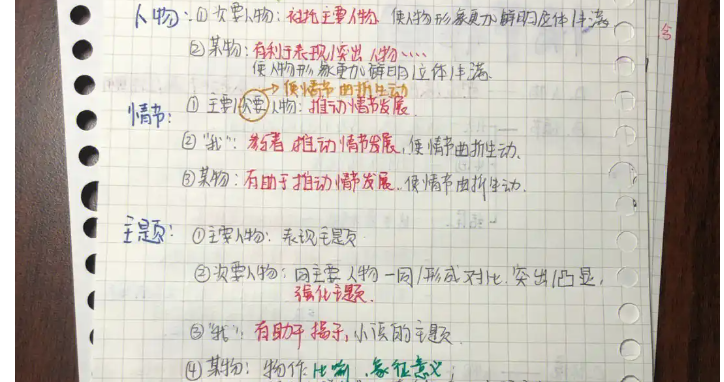 人物:①次要人物:衬托主要人物,使人物形象更加鲜明立体丰满
②某物:有利于表现/突出人物……
使人物形象更加鲜明立体丰满.
→使情节曲折生动
情节:①主要/次要人物:推动情节发展.
②"我":参与者 推动情节发展,使情节曲折生动.
③某物:有助于推动情节发展.使情节曲折生动.
主题:①主要人物:表现主题
②次要人物:同主要人物一同/形成对比.突出/凸显,
强化主题.
③"我":有助于揭示,小说的主题.
④某物:物作比喻、象征意义;
含